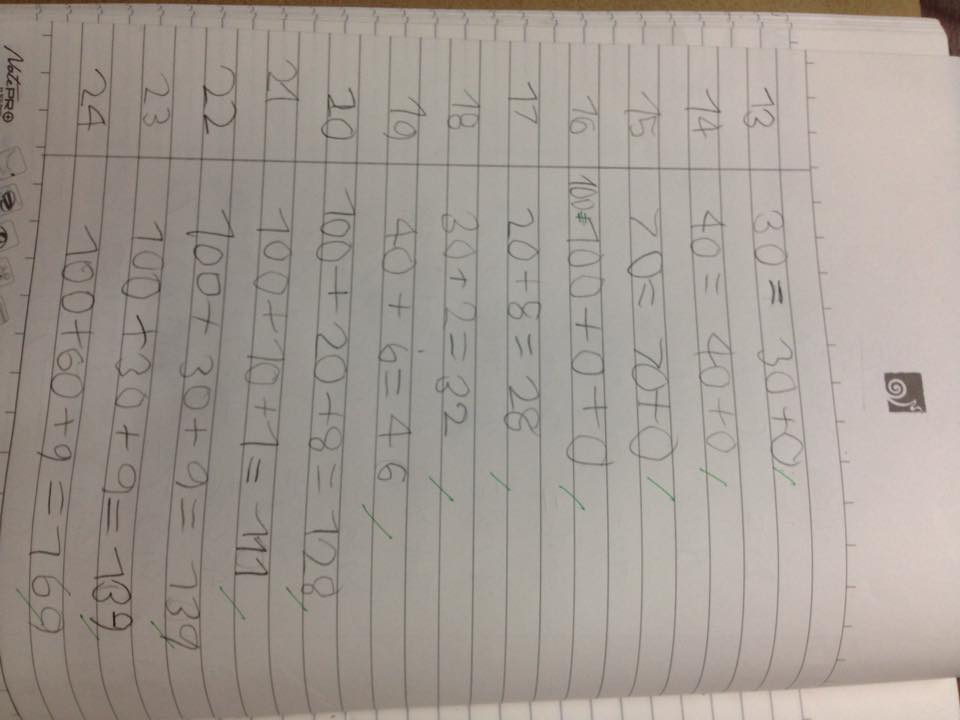 13 30 = 30+0
14 40 = 40+0
15 70= 70+0
16 100=100+0+0
17 20+8=28
18 30+2=32
19 40+6=46
20 100+20+8=128
21 100+10+1=111
22 100+30+9=139
23 100+30+9=139
24 100+60+9=169
NotePRO